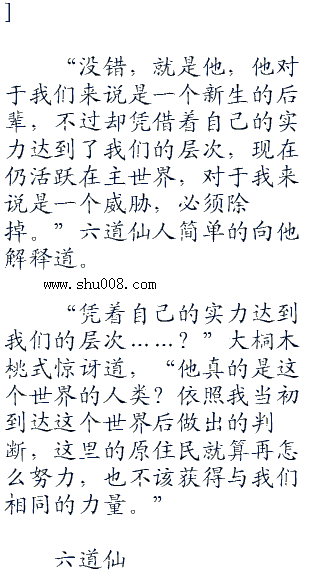 ]
“没错，就是他，他对
于我们来说是一个新生的后
辈，不过却凭借着自己的实
力达到了我们的层次，现在
仍活跃在主世界，对于我来
说是一个威胁，必须除
掉。”六道仙人简单的向他
解释道。
www.shu008.com
“凭着自己的实力达到
我们的层次……？”大桐木
桃式惊讶道，“他真的是这
个世界的人类？依照我当初
到达这个世界后做出的判
断，这里的原住民就算再怎
么努力，也不该获得与我们
相同的力量。”
六道仙